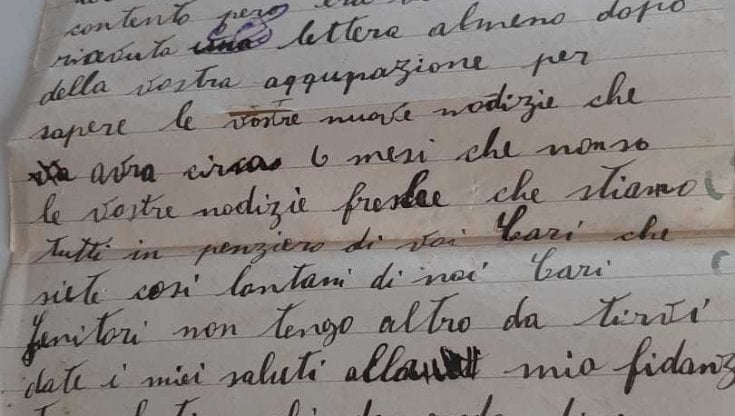 contento però
riavuta una lettera almeno dopo
della vostra aggupazione per
sapere le vostre nuove nodizie che
avra circa 6 mesi che nonso
le vostre nodizie fresche che stiamo
tutti in penziero di voi Cari che
siete cosi lontani di noi Cari
Genitori non tengo altro da tirvi
date i miei saluti alla mia fidanz